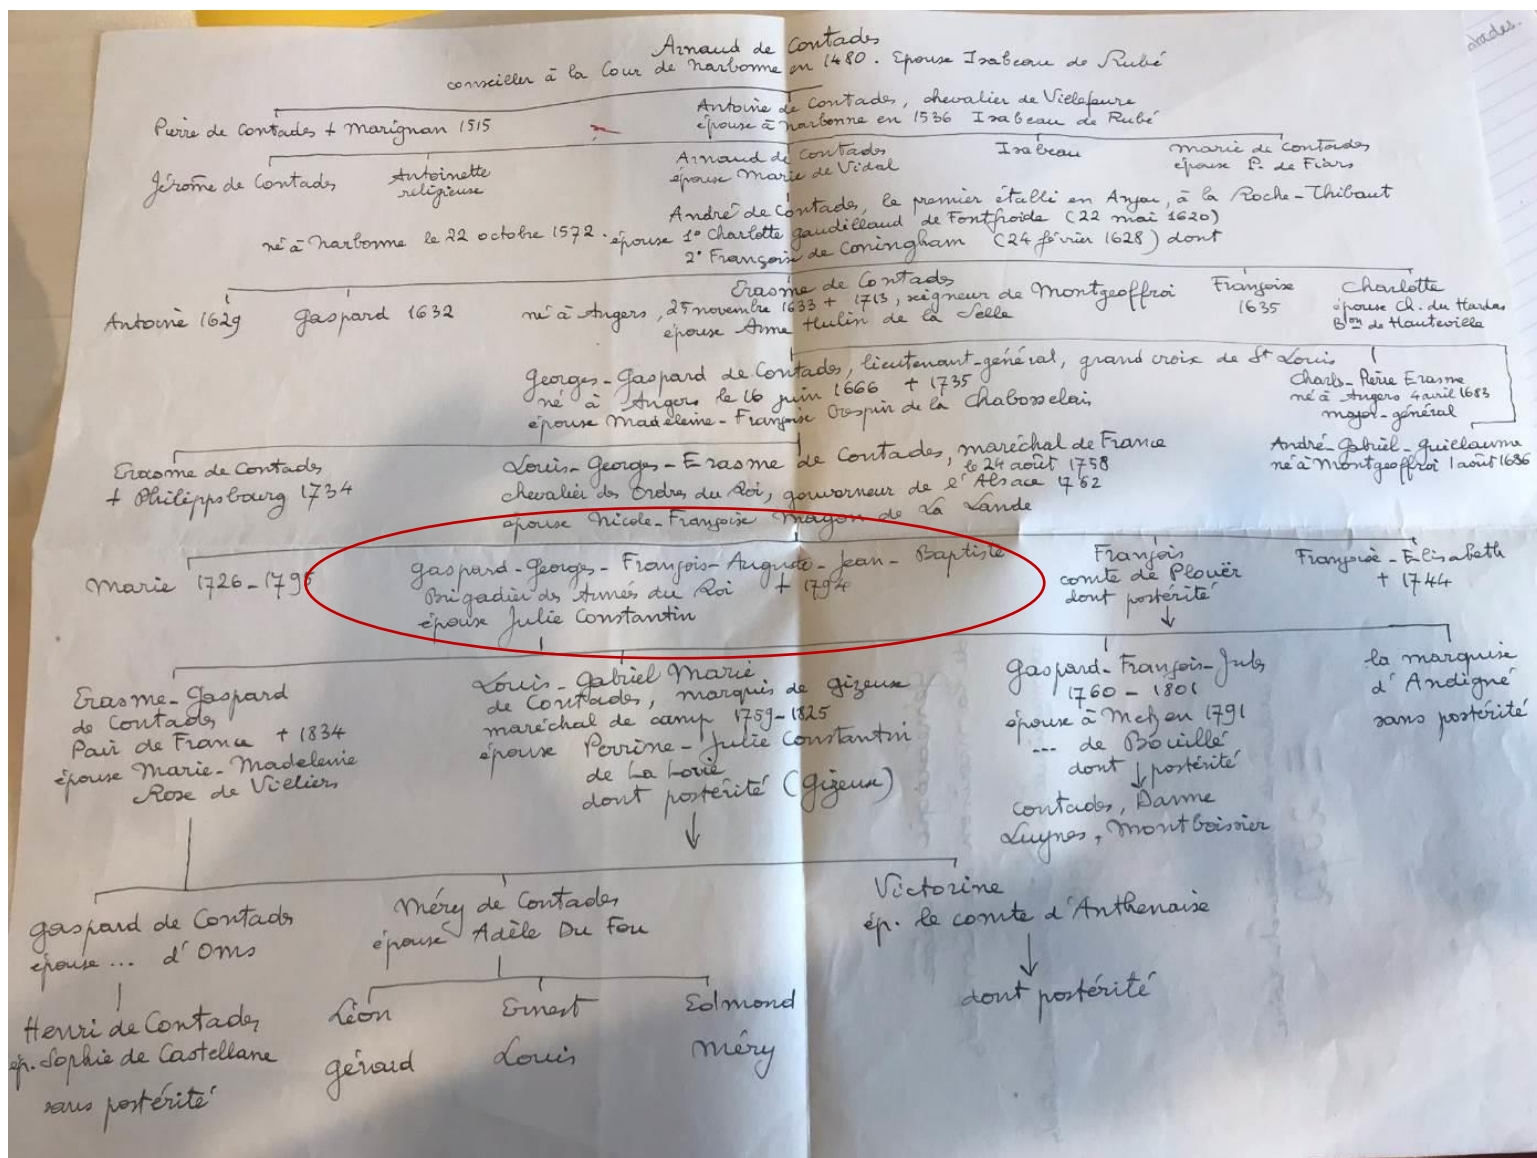 Arnaud de Contades
conseiller à la Cour de Narbonne en 1480. Epouse Isabeau de Rubé
Pierre de Contades + Marignan 1515
Antoine de Contades, chevalier de Villefeure
épouse à Narbonne en 1536 Isabeau de Rubé
Jérôme de Contades
Antoinette
religieuse
Arnaud de Contades
épouse Marie de Vidal
Isabeau
Marie de Contades
épouse P. de Fiars
André de Contades, le premier établi en Anjou, à la Roche-Thibaut
né à Narbonne le 22 octobre 1572. épouse 1° Charlotte gaudillaud de Fontfroide (22 mai 1620)
2° Françoise de Coningham (24 février 1628) dont
Antoine 1629
Gaspard 1632
Erasme de Contades
né à Angers, 25 novembre 1633 + 1713, seigneur de Montgeoffroi
épouse Anne Hulin de la Selle
Françoise
1635
Charlotte
épouse Ch. du Hardas
Bon de Hauteville
Georges-Gaspard de Contades, lieutenant-général, grand croix de St Louis
né à Angers le 16 juin 1666 + 1735
épouse Madeleine-Françoise Crespin de la Chabosselais
Charls-Pierre Erasme
né à Angers 4 avril 1683
major-général
Erasme de Contades
+ Philippsbourg 1734
Louis-Georges-Erasme de Contades, maréchal de France
le 24 août 1758
chevalier des Ordres du Roi, gouverneur de l'Alsace 1762
épouse Nicole-Françoise Magon de La Lande
André-Gabriel-Guillaume
né à Montgeoffroi 1 août 1686
Marie 1726-1795
Gaspard-Georges-François-Auguste-Jean-Baptiste
Brigadier des Armées du Roi + 1794
épouse Julie Constantin
François
comte de Plouër
dont postérité
Françoise-Élisabeth
+ 1744
Erasme-Gaspard
de Contades
Pair de France + 1834
épouse Marie-Madeleine
Rose de Villiers
Louis-Gabriel Marie
de Contades, marquis de Gizeux
maréchal de camp 1759-1825
épouse Perrine-Julie Constantin
de La Lorie
dont postérité (Gizeux)
Gaspard-François-Jules
1760-1801
épouse à Metz en 1791
... de Bouillé
dont postérité
Contades, Danne
Luynes, Montboissier
la marquise
d'Andigné
sans postérité
Gaspard de Contades
épouse ... d'Oms
Méry de Contades
épouse Adèle Du Fou
Victorine
ép. le comte d'Anthenaise
dont postérité
Henri de Contades
ép. Sophie de Castellane
sans postérité
Léon
Ernest
Edmond
Gérard
Louis
Méry